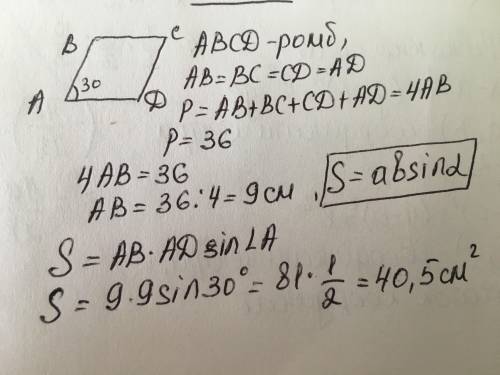 B C
A 30 D
ABCD-ромб,
AB=BC=CD=AD
P=AB+BC+CD+AD=4AB
P=36
4AB=36
AB=36:4=9см, S=absinα
S=AB·AD sin∠A
S=9·9sin30°=81·1/2=40,5см²